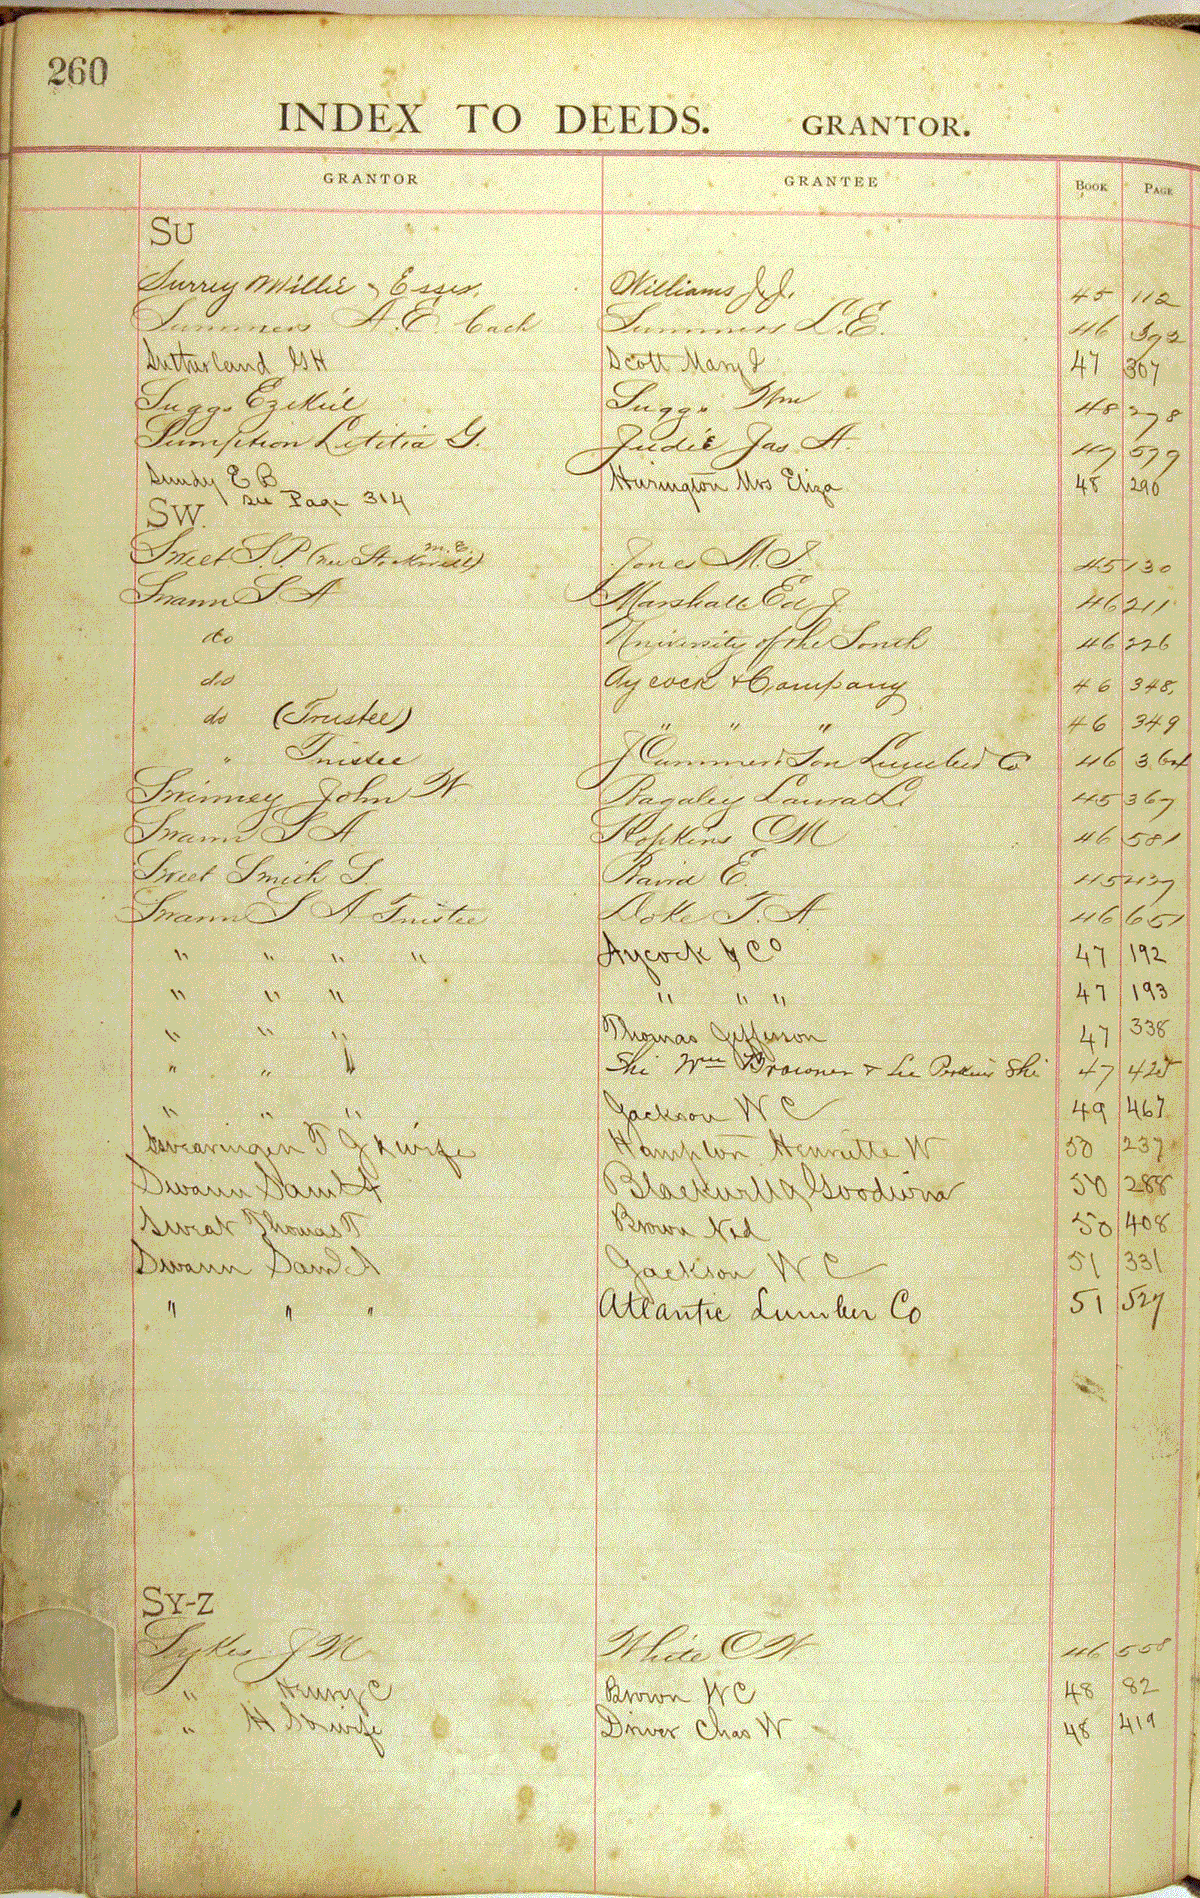 260
INDEX TO DEEDS. GRANTOR.
GRANTOR GRANTEE BOOK PAGE
SU
Surrey Millie & Essex. Williams J.J. 45 112
Summers A.E. Summers L.E. 46 392
Sutherland GH Scott Mary J 47 307
Suggs Ezekiel Suggs Wm 48 278
Sumption Letitia G. Judie Jas A. 47 579
Sundy E B Mrs Eliza 48 290
see Page 314
SW.
M.E.
Sweet S.P. (nee Stockwell) Jones M.S. 45 130
Swann S A Marshall Ed J. 46 211
do University of the South 46 226
do Aycock & Company 46 348
do (Trustee) " " " 46 349
" Trustee J Cummer & Son Lumber Co 46 364
Swinney John W Ragsley Laura L. 45 367
Swann S A Hopkins C M 46 581
Sweet Smith S. Baird E. 45 437
Swann S A Trustee Doke T. A 46 651
" " " " Aycock & Co 47 192
" " " " " " 47 193
" " " Thomas Jefferson 47 338
" " " Shi Wm Browner & Lee Perkins Shi 47 425
" " " Jackson W C 49 467
Swearingen T G & wife Hampton Henriette W 50 237
Swann Saml A Blackwell & Goodwin 50 288
Sweat Thomas T Brown Ned 50 408
Swann Saml A Jackson W C 51 331
" " " Atlantic Lumber Co 51 527
SY-Z
Sykes J M White O W 46 558
" Henry C Brown W C 48 82
" H S & wife Driver Chas W 48 419